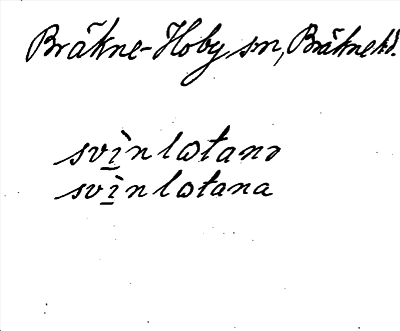 Bräkne-Hoby sn, Bräknehd.
svì̱nlⱺtanɔ
svì̱nlⱺtana